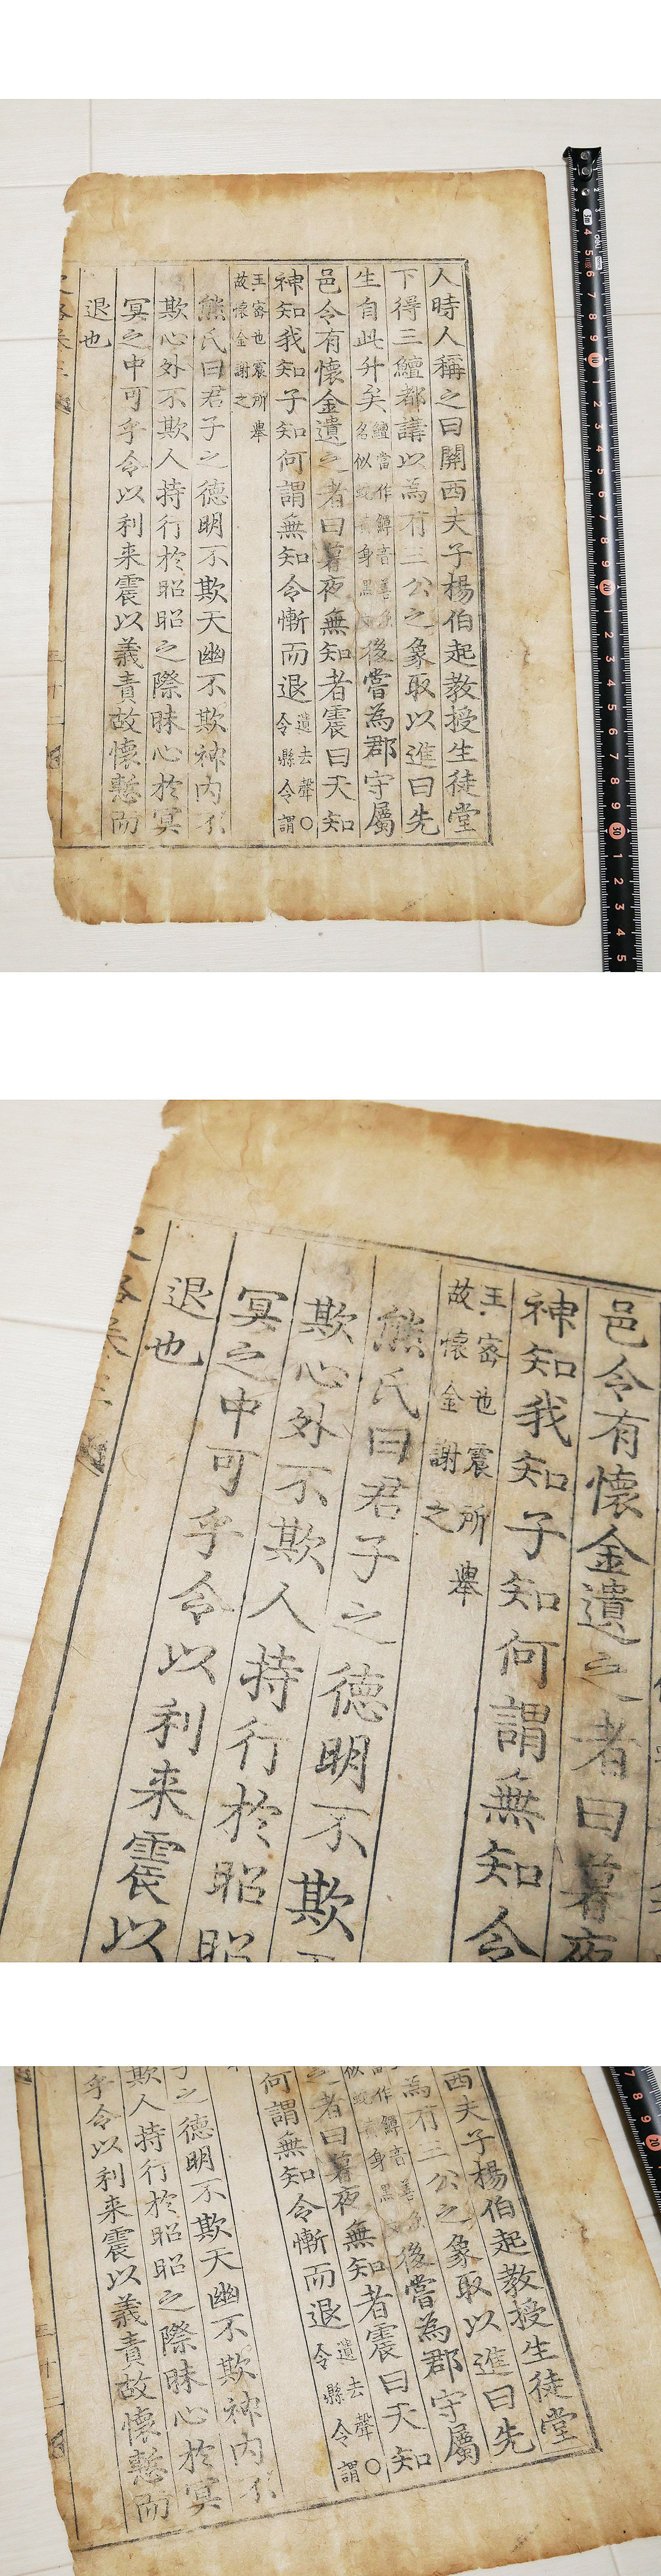 人時人稱之曰關西夫子楊伯起教授生徒堂
下得三鱣都講以為有三公之象取以進曰先
生自此升矣
鱣當作鱓音善魚
名似身黑
後嘗為郡守屬
邑令有懷金遺之者曰暮夜無知者震曰天知
神知我知子知何謂無知令慚而退
遺去聲〇
令縣令謂
王密也震所舉
故懷金謝之
熊氏曰君子之德明不欺天幽不欺神内不
欺心外不欺人持行於昭昭之際昧心於冥
冥之中可乎令以利来震以義責故懷慙而
退也